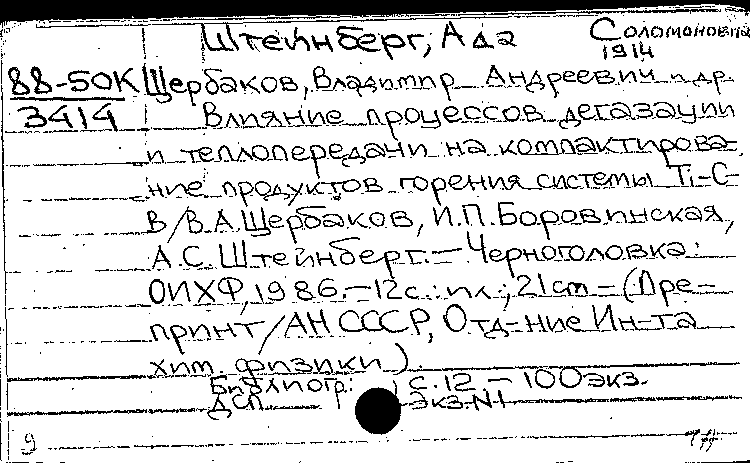 Штейнберг, Ада Соломоновна
1914
88-50К Щербаков, Владимир Андреевич и др.
3414 Влияние процессов дегазации
и теплопередачи на компактирова-
ние продуктов горения системы Ti-C-
B/В.А.Щербаков, И.П.Боровинская,
А.С.Штейнберг.—Черноголовка:
ОИХФ, 1986.—12с.:ил.; 21cm—(Пре-
принт/АН СССР, Отд-ние Ин-та
хим. физики).
Библиогр.: с.12.—100экз.
ДСП экз.N1
9